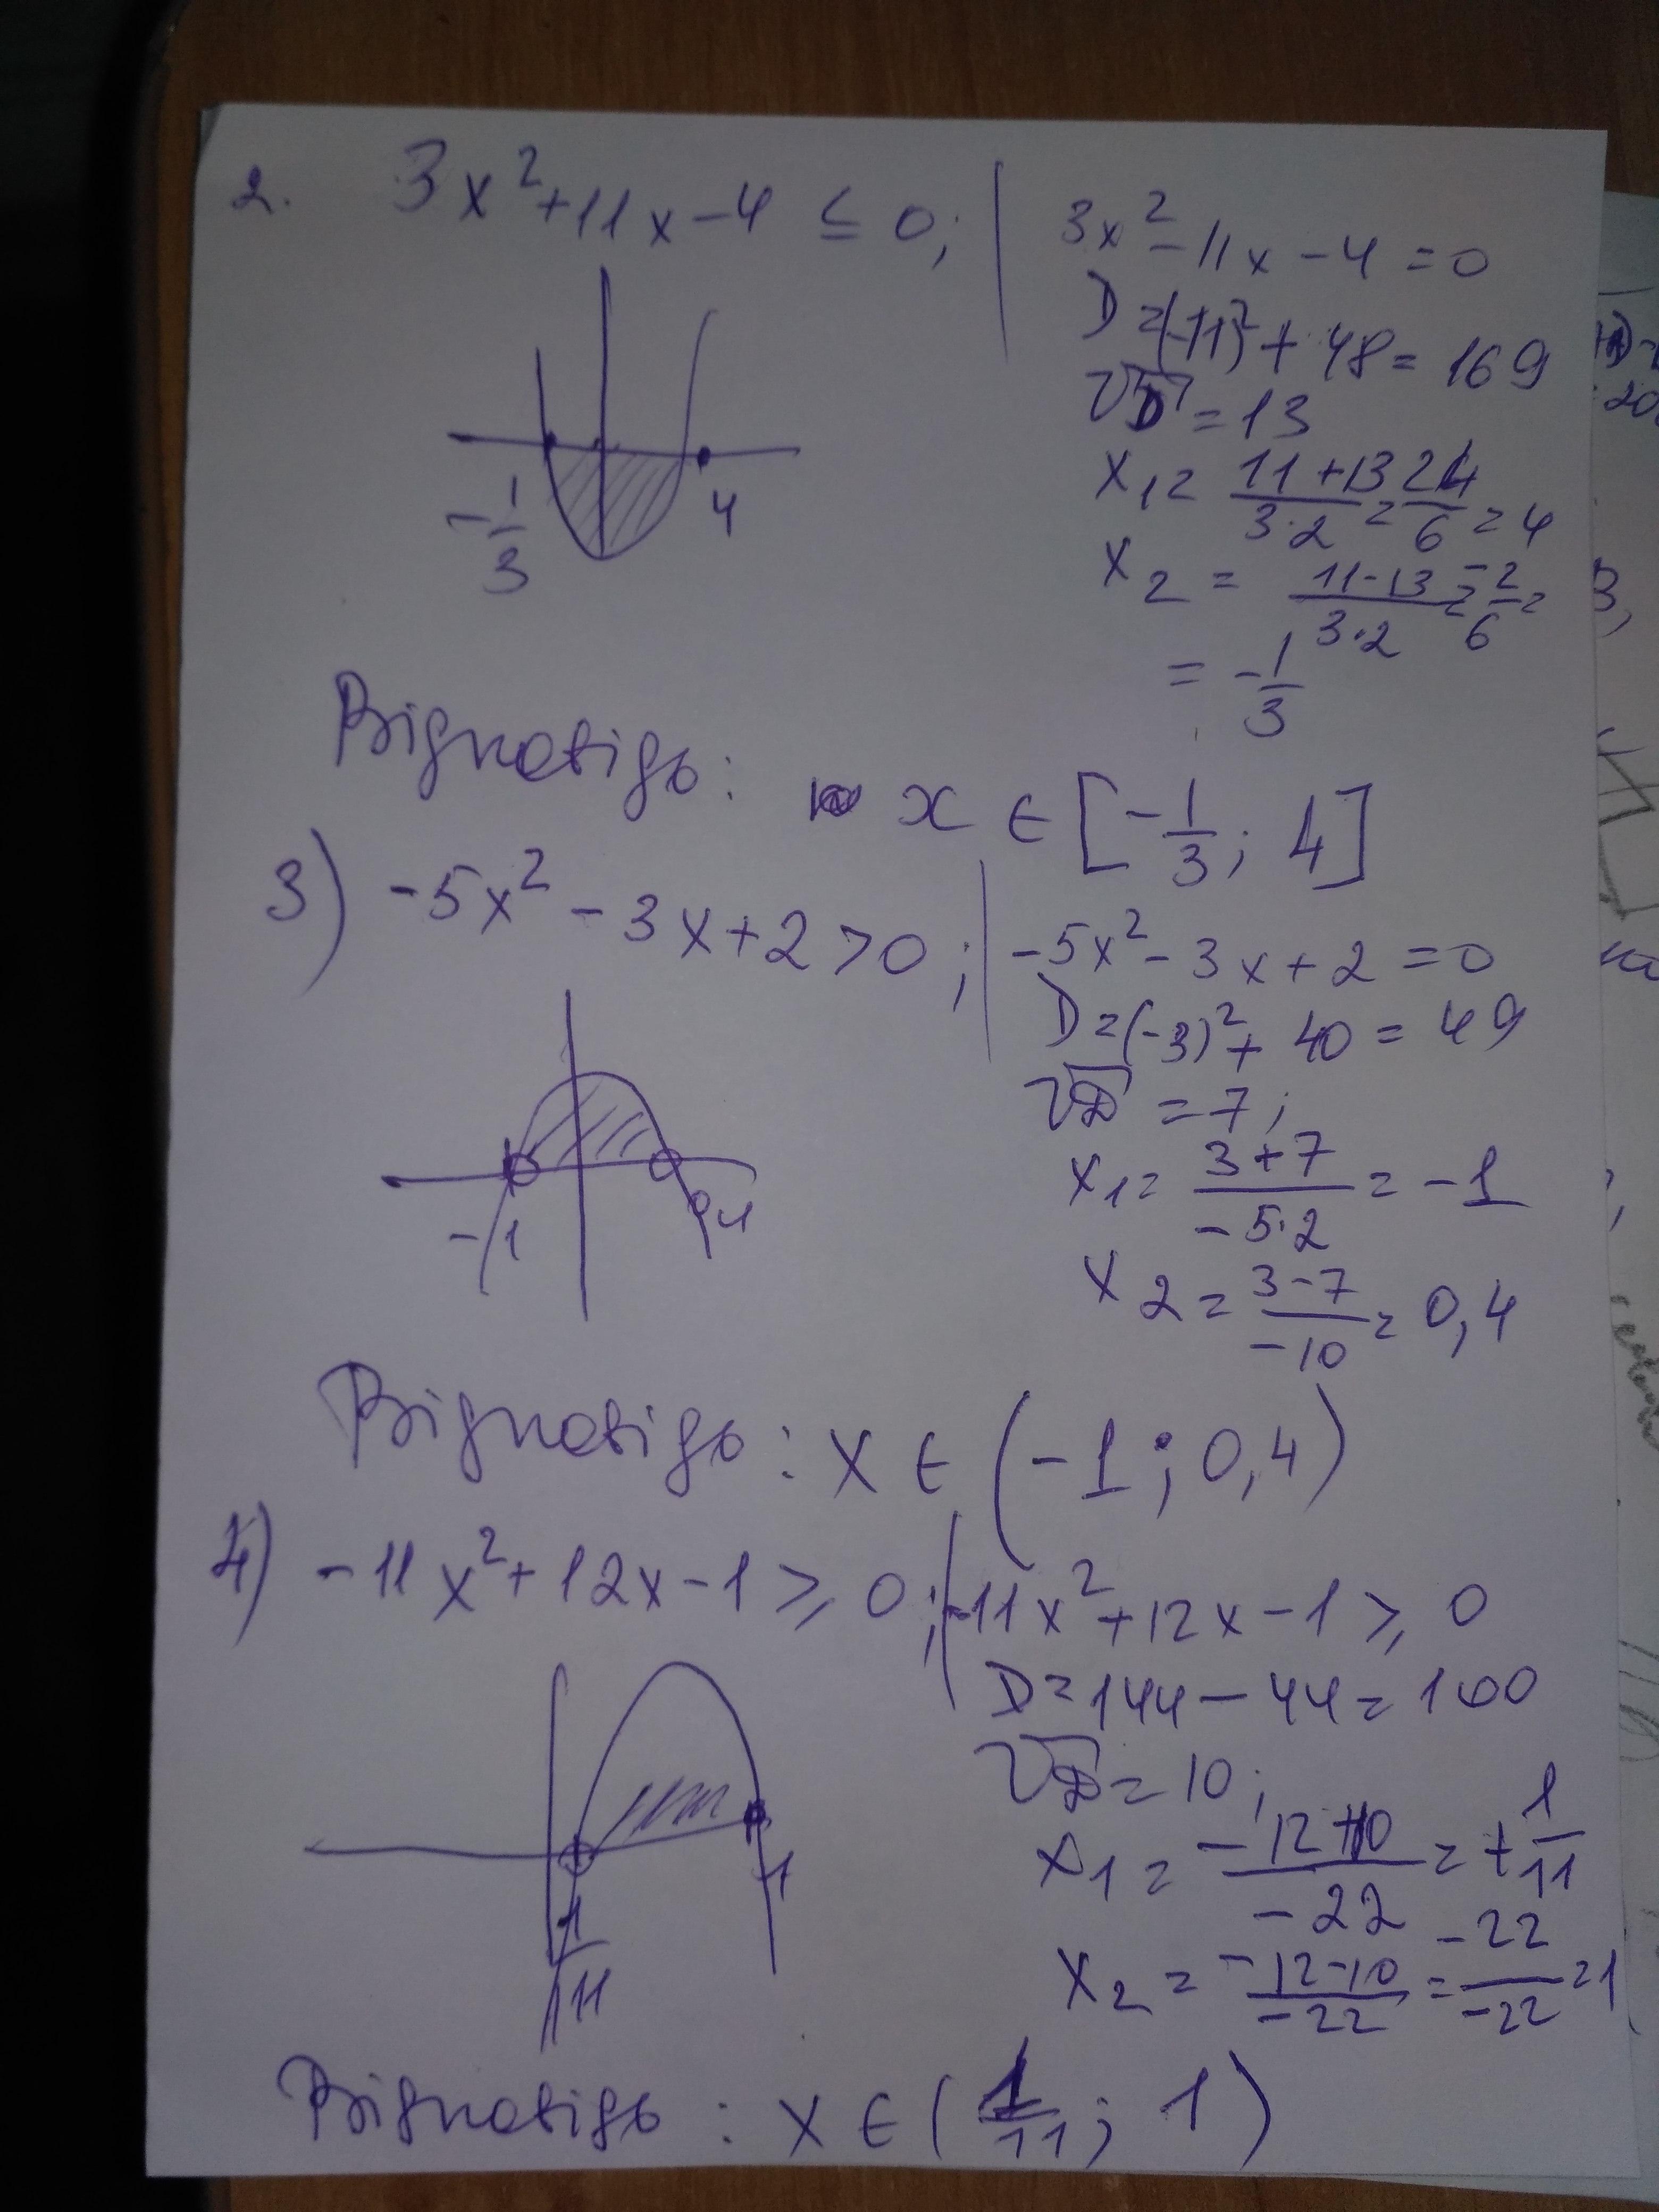 2. 3x²+11x-4 ≤ 0;
3x²-11x-4=0
D=(-11)²+48=169
√D=13
x₁= 11+13/3·2 = 24/6 = 4
x₂ = 11-13/3·2 = -2/6 =
= -1/3
-1/3 4
Відповідь: x ∈ [-1/3; 4]
3) -5x²-3x+2>0;
-5x²-3x+2=0
D=(-3)²+40=49
√D=7;
x₁= 3+7/-5·2 = -1
x₂= 3-7/-10 = 0,4
-1 0,4
Відповідь: x ∈ (-1; 0,4)
4) -11x²+12x-1≥0;
-11x²+12x-1≥0
D=144-44=100
√D=10;
x₁= -12+10/-22 = +1/11
x₂= -12-10/-22 = -22/-22 =1
1/11 1
Відповідь: x ∈ (1/11; 1)